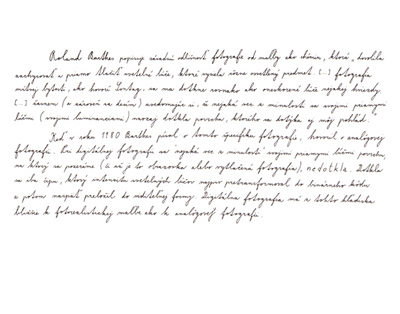 Roland Barthes popisuje zásadnú odlišnosť fotografie od maľby ako chémiu, ktorá „dovolila
zachytávať a priamo tlačiť svetelné lúče, ktoré vysiela rôzne osvetlený predmet. [...] fotografia
mŕtvej bytosti, ako hovorí Sontag, sa ma dotkne rovnako ako oneskorené lúče nejakej hviezdy
[...] žasnem (a zároveň sa desím) uvedomujúc si, že nejaká vec z minulosti sa svojimi priamymi
lúčmi (svojimi luminanciami) naozaj dotkla povrchu, ktorého sa dotýka aj môj pohľad."
Keď v roku 1980 Barthes písal o tomto špecifiku fotografie, hovoril o analógovej
fotografii. Pri digitálnej fotografii sa nejaká vec z minulosti svojimi priamymi lúčmi povrchu,
na ktorý sa pozeráme (či už je to obrazovka alebo vytlačená fotografia), nedotkla. Dotkla
sa iba čipu, ktorý intenzitu svetelných lúčov najprv pretransformoval do binárneho kódu
a potom naspäť preložil do viditeľnej formy. Digitálna fotografia má z tohto hľadiska
bližšie k fotorealistickej maľbe ako k analógovej fotografii.